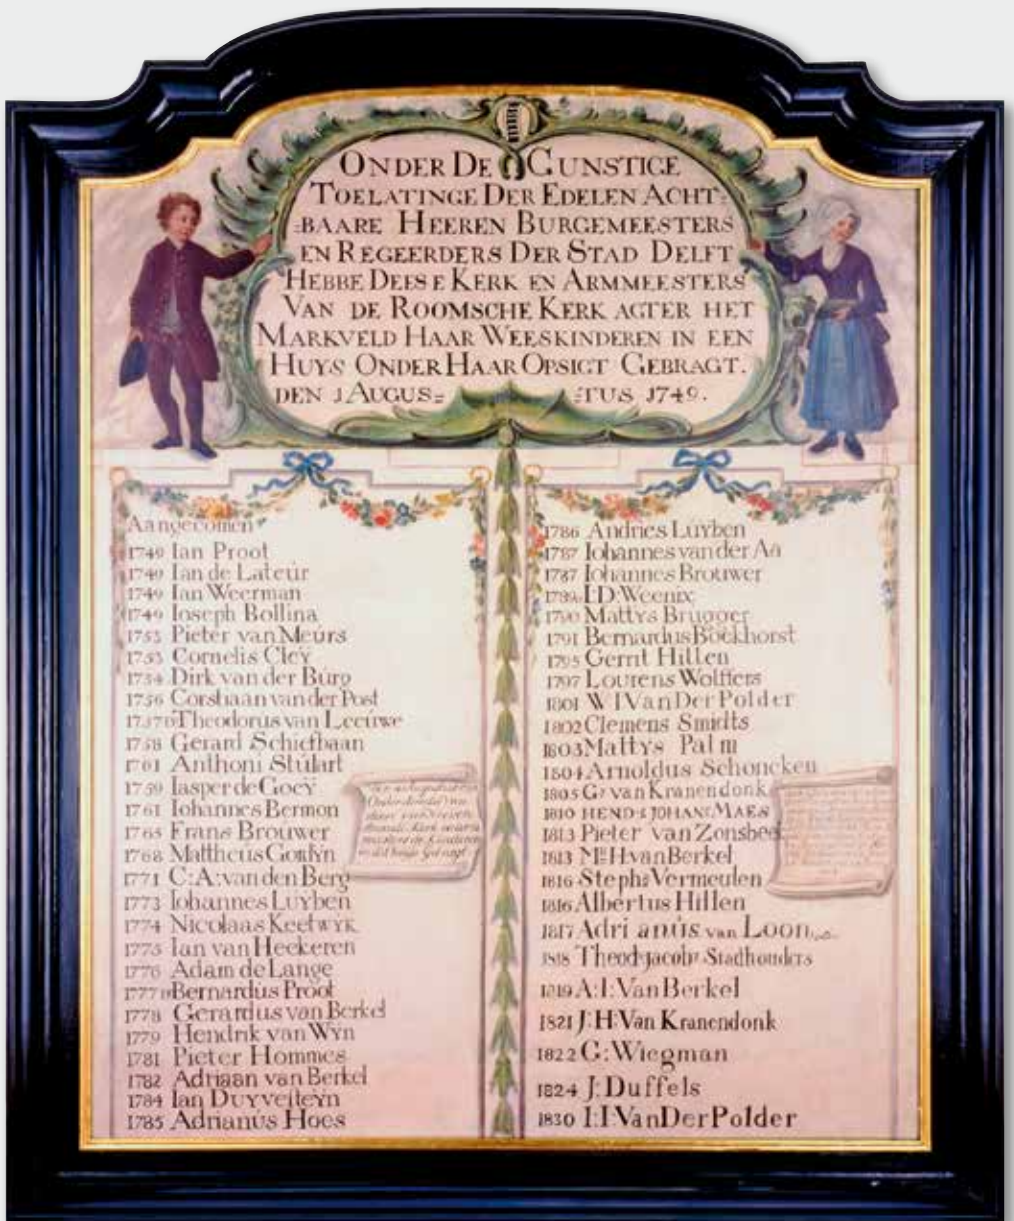 ONDER DE GUNSTIGE
TOELATINGE DER EDELEN ACHT:
:BAARE HEEREN BURGEMEESTERS
EN REGEERDERS DER STAD DELFT
HEBBE DEESE KERK EN ARMMEESTERS
VAN DE ROOMSCHE KERK AGTER HET
MARKVELD HAAR WEESKINDEREN IN EEN
HUYS ONDER HAAR OPSIGT GEBRAGT.
DEN 1 AUGUS= =TUS 1749.
Aangecomen
1749 Ian Proot
1749 Ian de Lateur
1749 Ian Weerman
1749 Ioseph Bollina
1753 Pieter van Meurs
1753 Cornelis Cleÿ
1754 Dirk van der Burg
1756 Corshaan van der Post
1757 Theodorus van Leeuwe
1758 Gerard Schiefbaan
1761 Anthoni Stulart
1759 Iasper de Goeÿ
1761 Iohannes Bermon
1765 Frans Brouwer
1768 Mattheus
1771 C:A:van den Berg
1773 Iohannes Luÿben
1774 Nicolaas Keetwÿk
1775 Ian van Heekeren
1776 Adam de Lange
1777 Bernardus Proot
1778 Gerardus van Berkel
1779 Hendrik van Wÿn
1781 Pieter Hommes
1782 Adriaan van Berkel
1784 Ian Duÿvesteÿn
1785 Adrianus Hoes
1786 Andries Luÿben
1787 Iohannes van der Aa
1787 Iohannes Brouwer
1789 I:D:Weenix
1790 Mattys Brugger
1791 Bernardus Bockhorst
1795 Gerrit Hillen
1797 Lourens Wolffers
1801 W I Van Der Polder
1802 Clemens Smidts
1803 Mattys Palm
1804 Arnoldus Schoncken
1805 G: van Kranendonk
1810 HEND:s JOHAN:s MAES
1813 Pieter van Zonsbeek
1813 Mr H:van Berkel
1816 Steph: Vermeulen
1816 Albertus Hillen
1817 Adrianus van Loon
1818 Theod: Jacob: Stadhouders
1819 A:I:Van Berkel
1821 J:H:Van Kranendonk
1822 G:Wiegman
1824 J:Duffels
1830 I:I:Van Der Polder